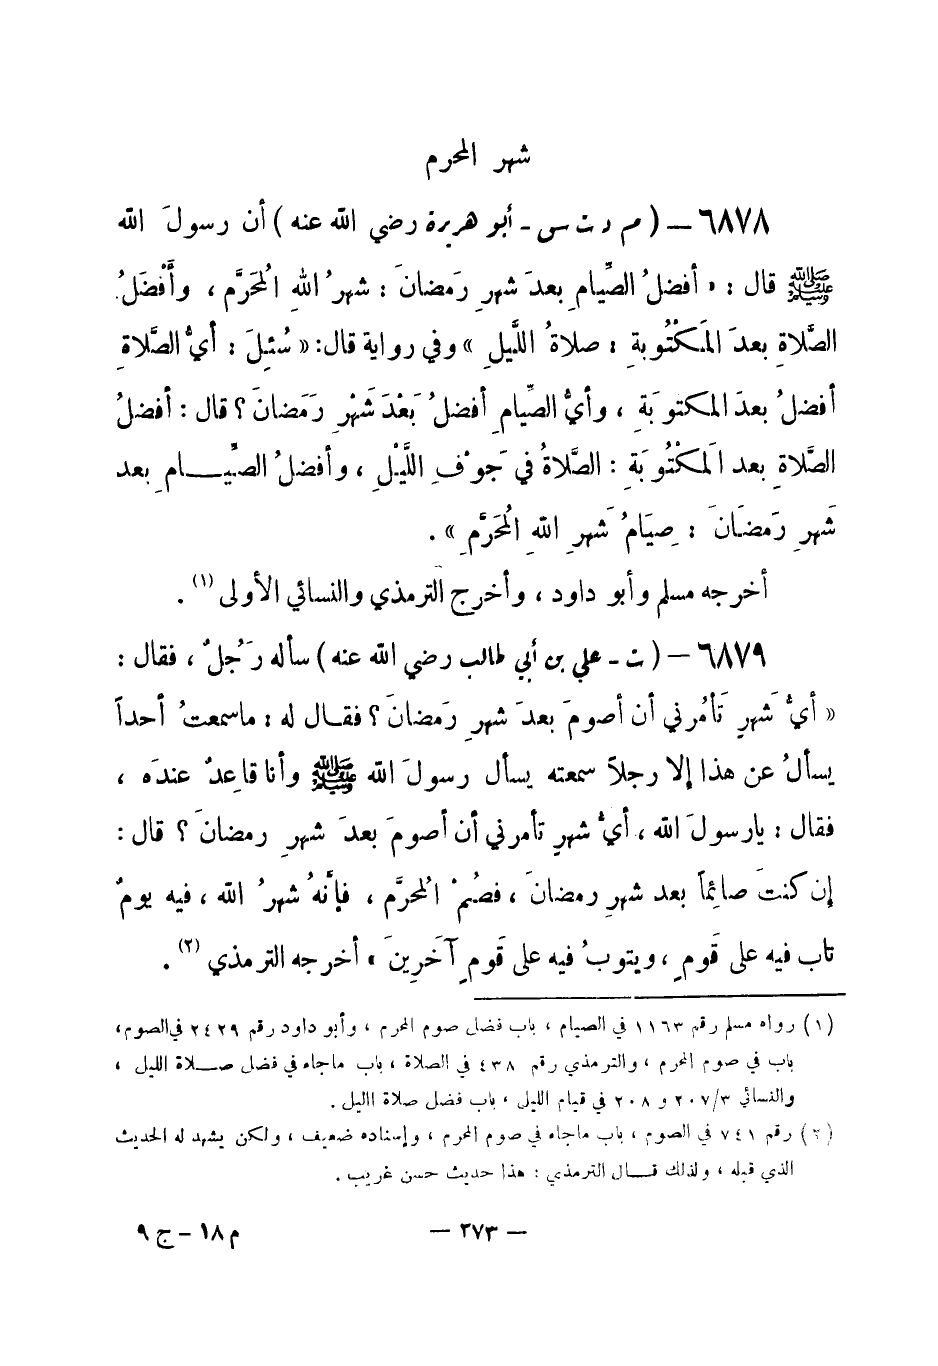 شهر المحرم
٦٨٧٨ – ( م د ت س - أبو هريرة رضي الله عنه ) أن رسولَ الله
ﷺ قال : « أفضلُ الصِّيام بعدَ شهرِ رَمضانَ : شهرُ اللهِ المُحَرَّم ، وأَفْضَلُ
الصَّلاةِ بعدَ المَكْتُوبةِ : صلاةُ اللَّيل » وفي رواية قال: « سُئِلَ : أيُّ الصَّلاةِ
أفضلُ بعدَ المكتوبَةِ ، وأيُّ الصِّيامِ أفضلُ بَعْدَ شَهْرِ رَمَضانَ ؟ قال : أفضلُ
الصَّلاةِ بعد المَكْتُوبَةِ : الصَّلاةُ في جَوْفِ اللَّيْلِ ، وأفضلُ الصِّيـــامِ بعد
شَهرِ رَمضَانَ : صِيَامُ شَهرِ اللهِ المُحَرَّمِ » .
أخرجه مسلم وأبو داود ، وأخرج الترمذي والنسائي الأولى (١) .
٦٨٧٩ – ( ت - علي بن أبي طالب رضي الله عنه ) سأله رَجُلٌ ، فقال :
« أيُّ شَهرٍ تَأمُرني أن أصومَ بعدَ شهرِ رَمضانَ ؟ فقـال له : ماسمعتُ أحداً
يسألُ عن هذا إلا رجلاً سمعته يسأل رسولَ الله ﷺ وأنا قاعِدٌ عندَه ،
فقال : يارسولَ الله ، أيُّ شهرٍ تأمرني أن أصومَ بعدَ شهرِ رمضانَ ؟ قال :
إن كنتَ صائِماً بعد شهرِ رمضانَ ، فصُمْ المُحرَّم ، فإنَّهُ شهرُ الله ، فيه يومٌ
تاب فيه على قَومٍ ، ويتوبُ فيه على قَومٍ آخَرِينَ » أخرجه الترمذي (٢) .
(١) رواه مسلم رقم ١١٦٣ في الصيام ، باب فضل صوم المحرم ، وأبو داود رقم ٢٤٢٩ في الصوم،
باب في صوم المحرم ، والترمذي رقم ٤٣٨ في الصلاة ، باب ماجاء في فضل صـــلاة الليل ،
والنسائي ٢٠٧/٣ و ٢٠٨ في قيام الليل ، باب فضل صلاة الليل .
(٢) رقم ٧٤١ في الصوم ، باب ماجاء في صوم المحرم ، وإسناده ضعيف ، ولكن يشهد له الحديث
الذي قبله ، ولذلك قـــال الترمذي : هذا حديث حسن غريب .
– ٢٧٣ –
م ١٨ – ج ٩